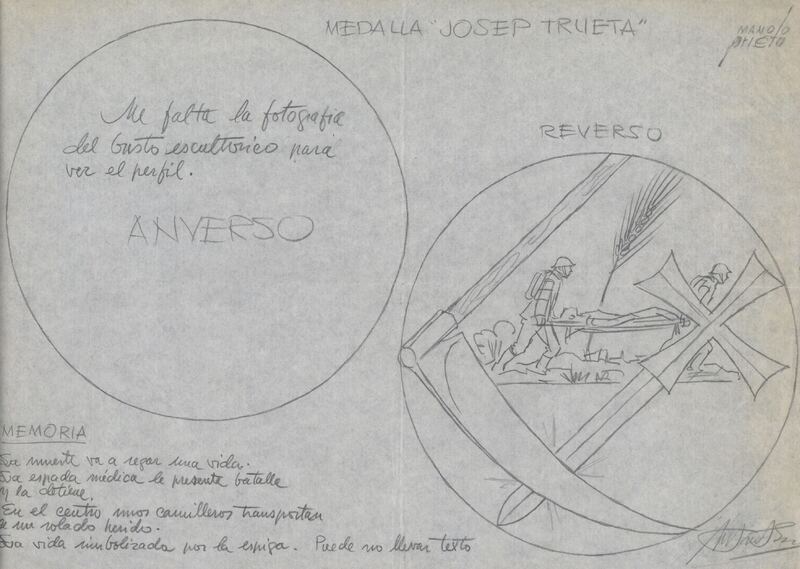 MEDALLA "JOSEP TRUETA"
MANOLO
PRIETO
Me falta la fotografia
del busto escultorico para
ver el perfil.
ANVERSO
REVERSO
MEMORIA
La muerte va a segar una vida.
La espada médica le presenta batalla
y la detiene.
En el centro unos camilleros transportan
a un soldado herido.
La vida simbolizada por la espiga. Puede no llevar texto